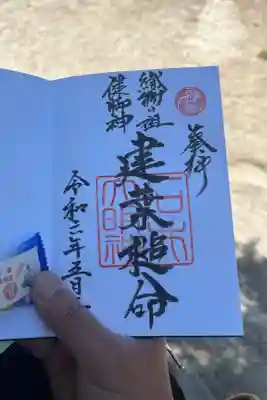 奉拝
織物の祖
神
建葉槌命
令和六年五月